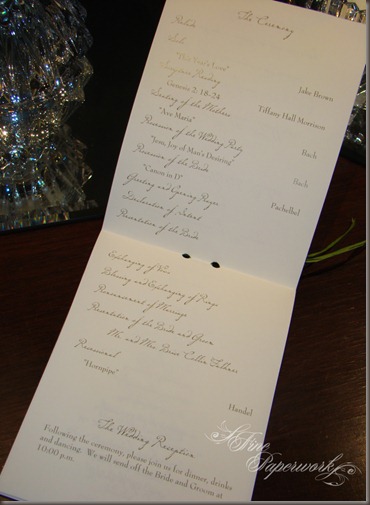 The Ceremony
Prelude
Solo
Jake Brown
Scripture Reading
Genesis 2: 18-24
Tiffany Hall Morrison
Seating of the Mothers
"Ave Maria"
Bach
Procession of the Wedding Party
"Jesu, Joy of Man's Desiring"
Bach
Procession of the Bride
"Canon in D"
Pachelbel
Greeting and Opening Prayer
Declaration of Intent
Presentation of the Bride
Exchanging of Vows
Blessing and Exchanging of Rings
Pronouncement of Marriage
Presentation of the Bride and Groom
Mr. and Mrs. Brian
Recessional
"Hornpipe"
Handel
The Wedding Reception
Following the ceremony, please join us for dinner, drinks
and dancing. We will send off the Bride and Groom at
10:00 p.m.
A Fine
Paperworks